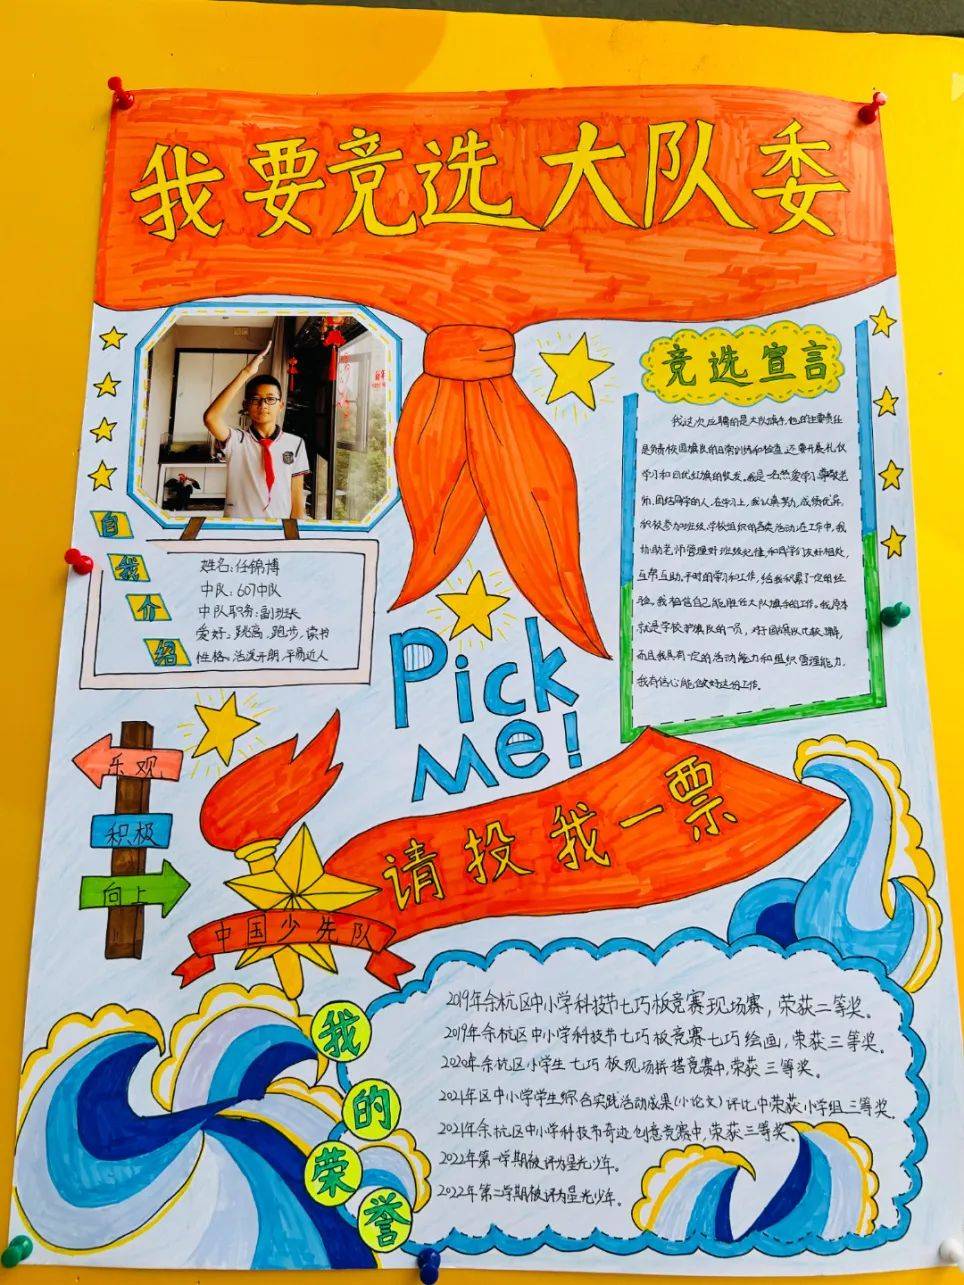 我要竞选大队委
自我介绍
姓名:任锦博
中队:607中队
中队职务:副班长
爱好:跳高,跑步,读书
性格:活泼开朗,平易近人
竞选宣言
我这次应聘的是大队旗手,他的主要责任
是负责校园旗队的日常训练和检查,还要开展礼仪
学习和回代红旗的收发。我是一名热爱学习,尊敬老
师,团结同学的人。在学习上,我认真努力,成绩优异,
积极参加班级、学校组织的各类活动;在工作中,我
协助老师管理好班级纪律,和同学们友好相处,
互帮互助。平时的学习和工作,给我积累了一定的经
验。我相信自己能胜任大队旗手的工作。我原本
就是学校护旗队的一员,对于国旗队比较了解,
而且我具有一定的活动能力和组织管理能力,
我有信心能做好这份工作。
Pick
Me!
乐观
积极
向上
请投我一票
中国少先队
我的荣誉
2019年余杭区中小学科技节七巧板竞赛现场赛,荣获二等奖。
2019年余杭区中小学科技节七巧板竞赛七巧绘画,荣获三等奖。
2020年余杭区小学生七巧板现场拼搭竞赛中,荣获三等奖。
2021年区中小学学生综合实践活动成果(小论文)评比中荣获小学组三等奖。
2021年余杭区中小学科技节奇迹创意竞赛中,荣获三等奖。
2022年第一学期被评为星光少年。
2022年第二学期被评为星光少年。